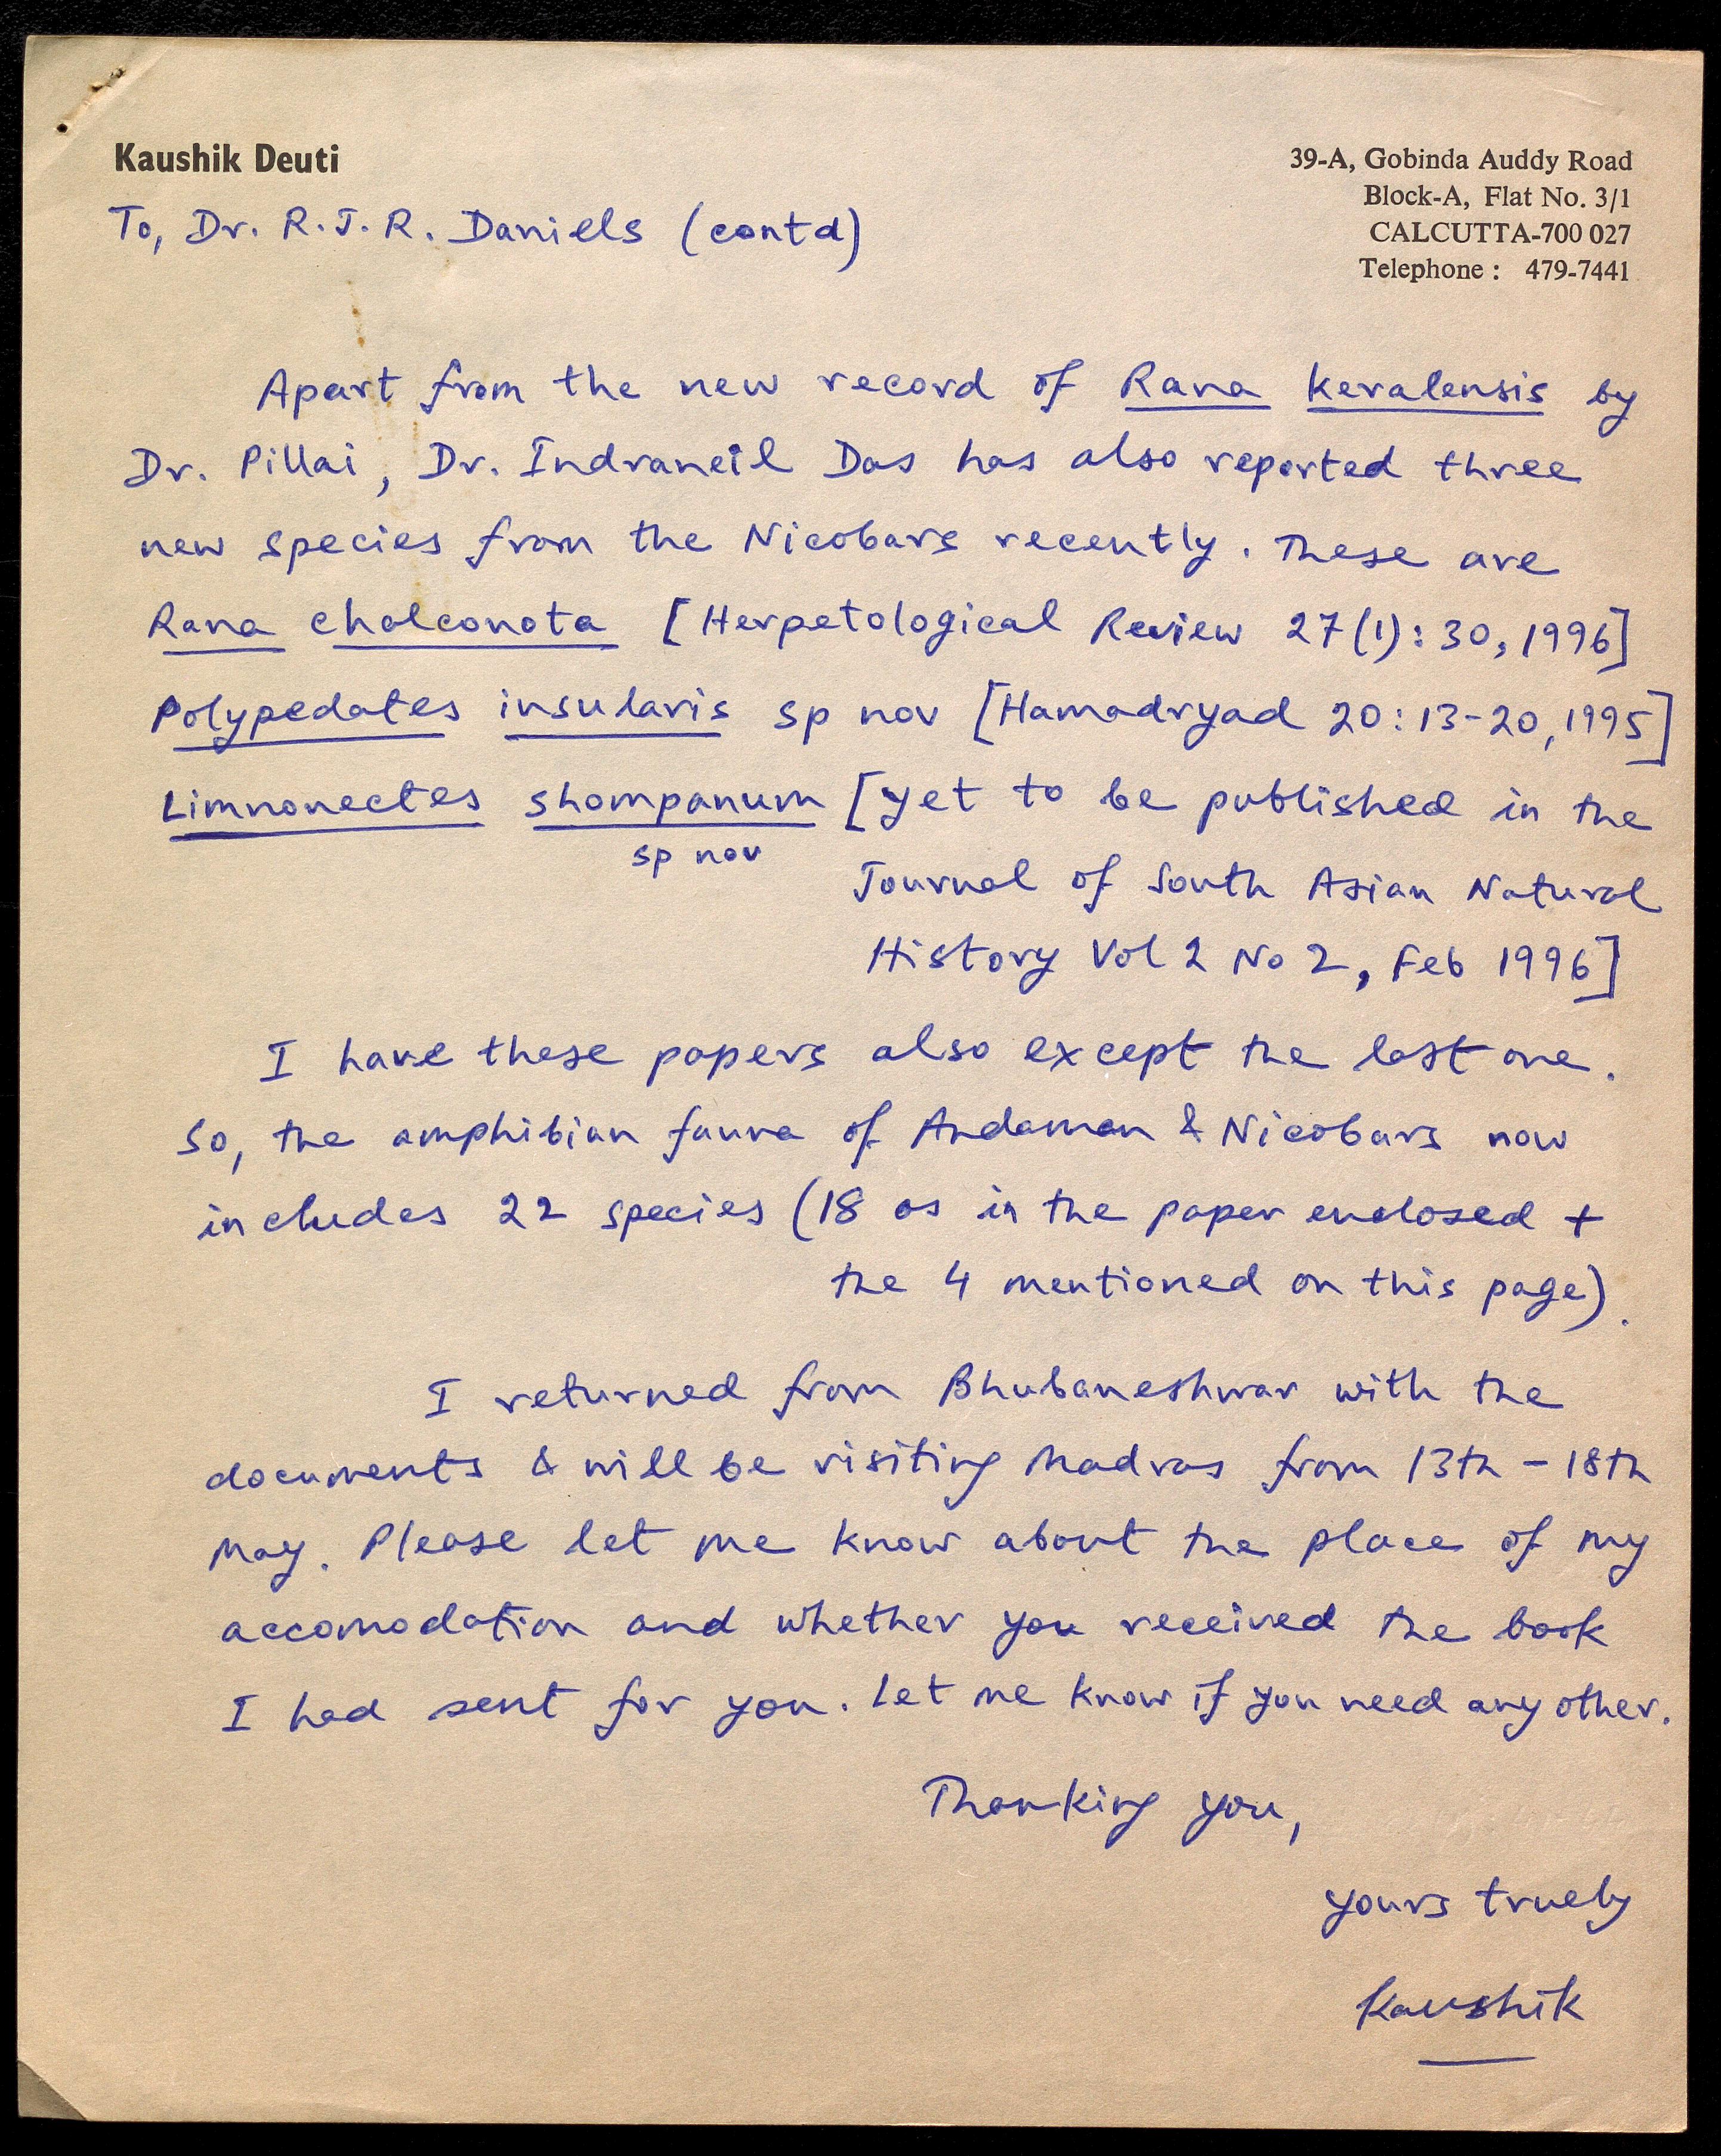 Kaushik Deuti
39-A, Gobinda Auddy Road
Block-A, Flat No. 3/1
CALCUTTA-700 027
Telephone : 479-7441
To, Dr. R.J.R. Daniels (contd)
Apart from the new record of Rana keralensis by
Dr. Pillai, Dr. Indraneil Das has also reported three
new species from the Nicobars recently. These are
Rana chalconota [Herpetological Review 27(1):30, 1996]
Polypedates insularis sp nov [Hamadryad 20:13-20, 1995]
Limnonectes shompanum [yet to be published in the
sp nov
Journal of South Asian Natural
History Vol 2 No 2, Feb 1996]
I have these papers also except the last one.
So, the amphibian fauna of Andaman & Nicobars now
includes 22 species (18 as in the paper enclosed +
the 4 mentioned on this page).
I returned from Bhubaneshwar with the
documents & will be visiting Madras from 13th - 18th
May. Please let me know about the place of my
accomodation and whether you received the book
I had sent for you. Let me know if you need any other.
Thanking you,
yours truely
Kaushik